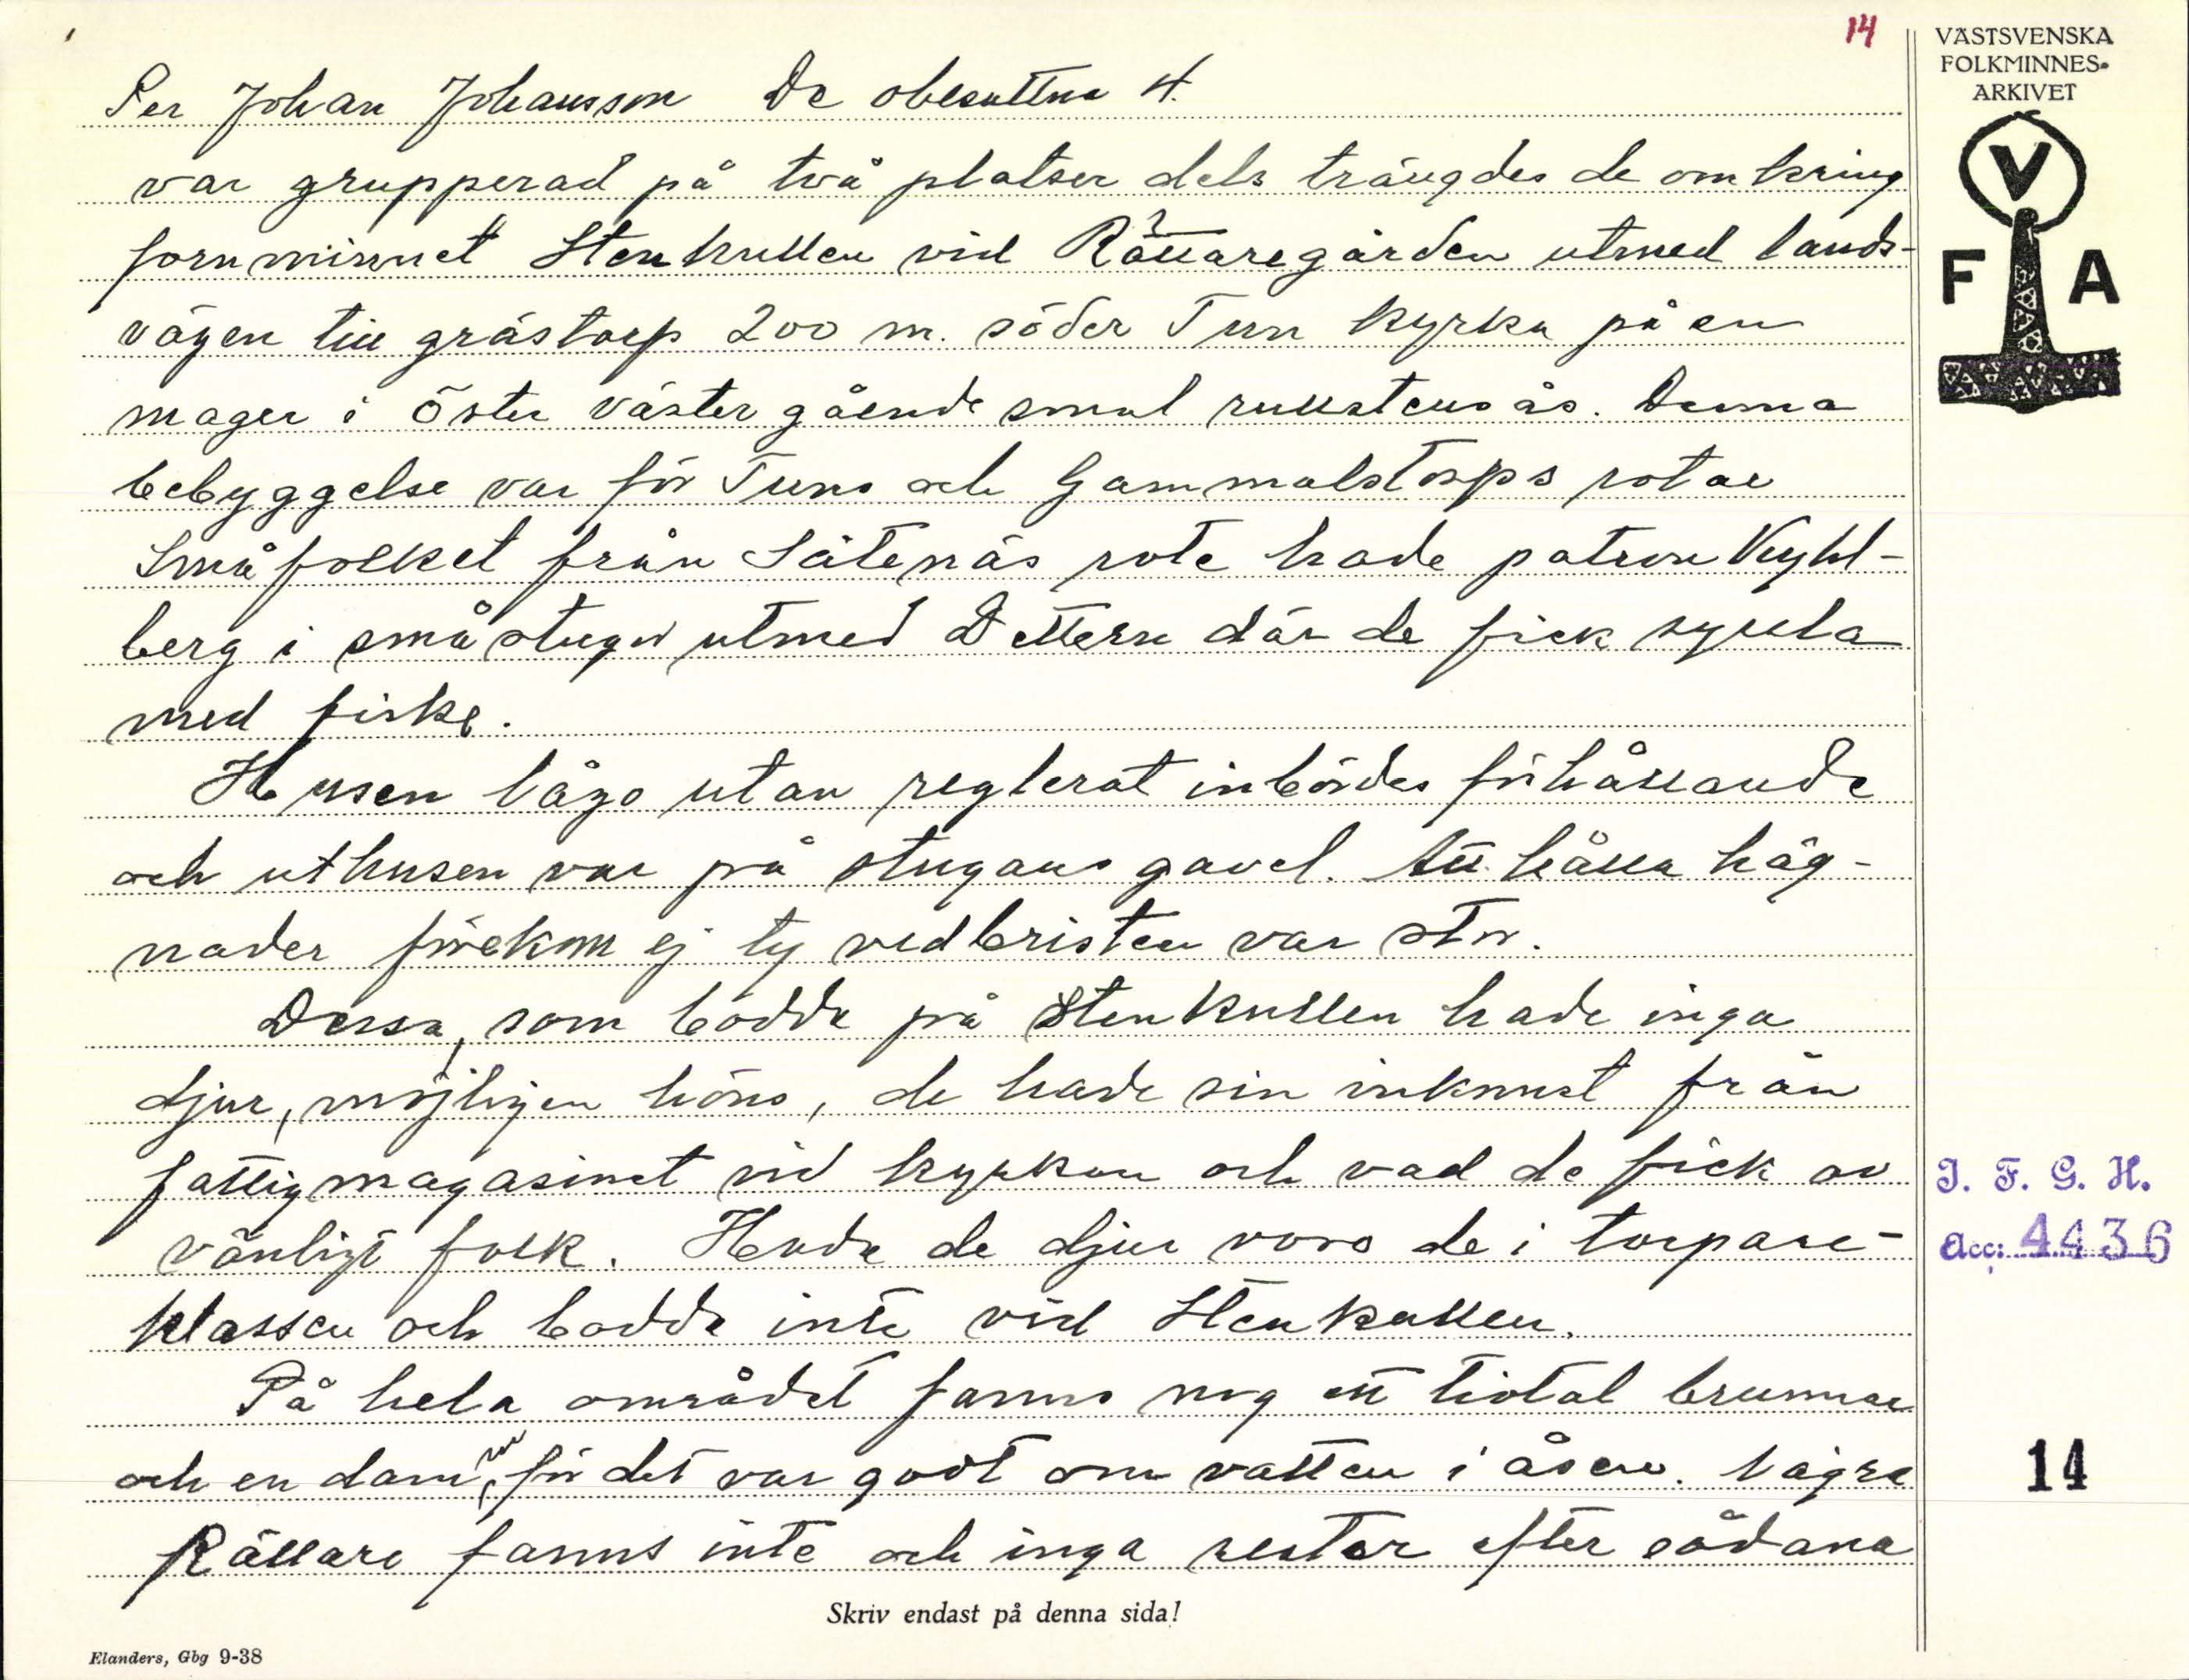 14
VÄSTSVENSKA
FOLKMINNES-
ARKIVET
V
F A
Per Johan Johansson De obesuttna 4.
var grupperad på två platser dels trängdes de omkring
fornminnet Stenkullen vid Rättaregården utmed lands-
vägen till grästorp 200 m. söder Tun kyrka på en
mager i öster väster gående smal rullstensås. Denna
bebyggelse var för Tuns och Gammalstorps rotar
Småfolket från Såtenäs rote hade patron Kyhl-
berg i små stugor utmed Dettern där de fick syssla
med fiske.
Husen lågo utan reglerat inbördes förhållande
och uthusen var på stugans gavel. Att hålla häg-
nader förekom ej ty vedbristen var stor.
Dessa, som bodde på Stenkullen hade inga
djur, möjligen höns, de hade sin inkomst från
fattigmagasinet vid kyrkan och vad de fick av
vänligt folk. Hade de djur voro de i torpare-
klassen och bodde inte vid Stenkullen.
På hela området fanns nog ett tiotal brunnar
och en dam, för det var gott om vatten i åsen. Några
Källare fanns inte och inga rester efter sådana
I. F. G. H.
acc: 4436
14
Skriv endast på denna sida!
Elanders, Gbg 9-38